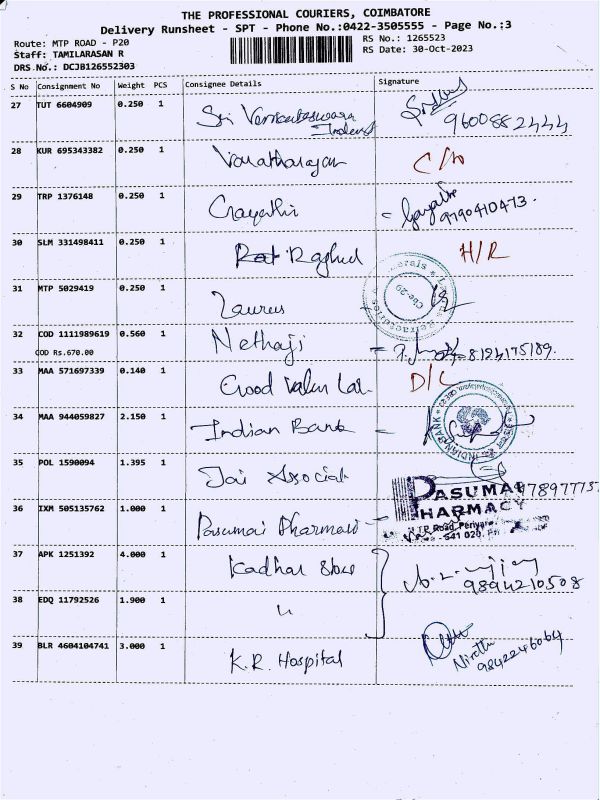 THE PROFESSIONAL COURIERS, COIMBATORE
Delivery Runsheet - SPT - Phone No.:0422-3505555 - Page No.:3
Route: MTP ROAD - P20
RS No.: 1265523
Staff: TAMILARASAN R
RS Date: 30-Oct-2023
DRS No.: DCJB126552303
S No Consignment No Weight PCS Consignee Details Signature
27 TUT 6604909 0.250 1 Sri Venkateswara
9600882444
28 KUR 695343382 0.250 1 Varatharajan
29 TRP 1376148 0.250 1 Gayathri = Gayathri
9790410473.
30 SLM 331498411 0.250 1 Raghul H/R
31 MTP 5029419 0.250 1 Laurus
Cbe-29
32 COD 1111989619 0.560 1 Nethaji
8124175189.
COD Rs.670.00
33 MAA 571697339 0.140 1 Good Value D/L
34 MAA 944059827 2.150 1 Indian Bank
INDIAN BANK
35 POL 1590094 1.395 1 Jai Associat
36 IXM 505135762 1.000 1 Pasumai Pharmacy
PASUMAI
PHARMACY
37 APK 1251392 4.000 1 Kadhar Store
9894210508
38 EDQ 11792526 1.900 1 "
39 BLR 4604104741 3.000 1 K.R. Hospital
9842246064